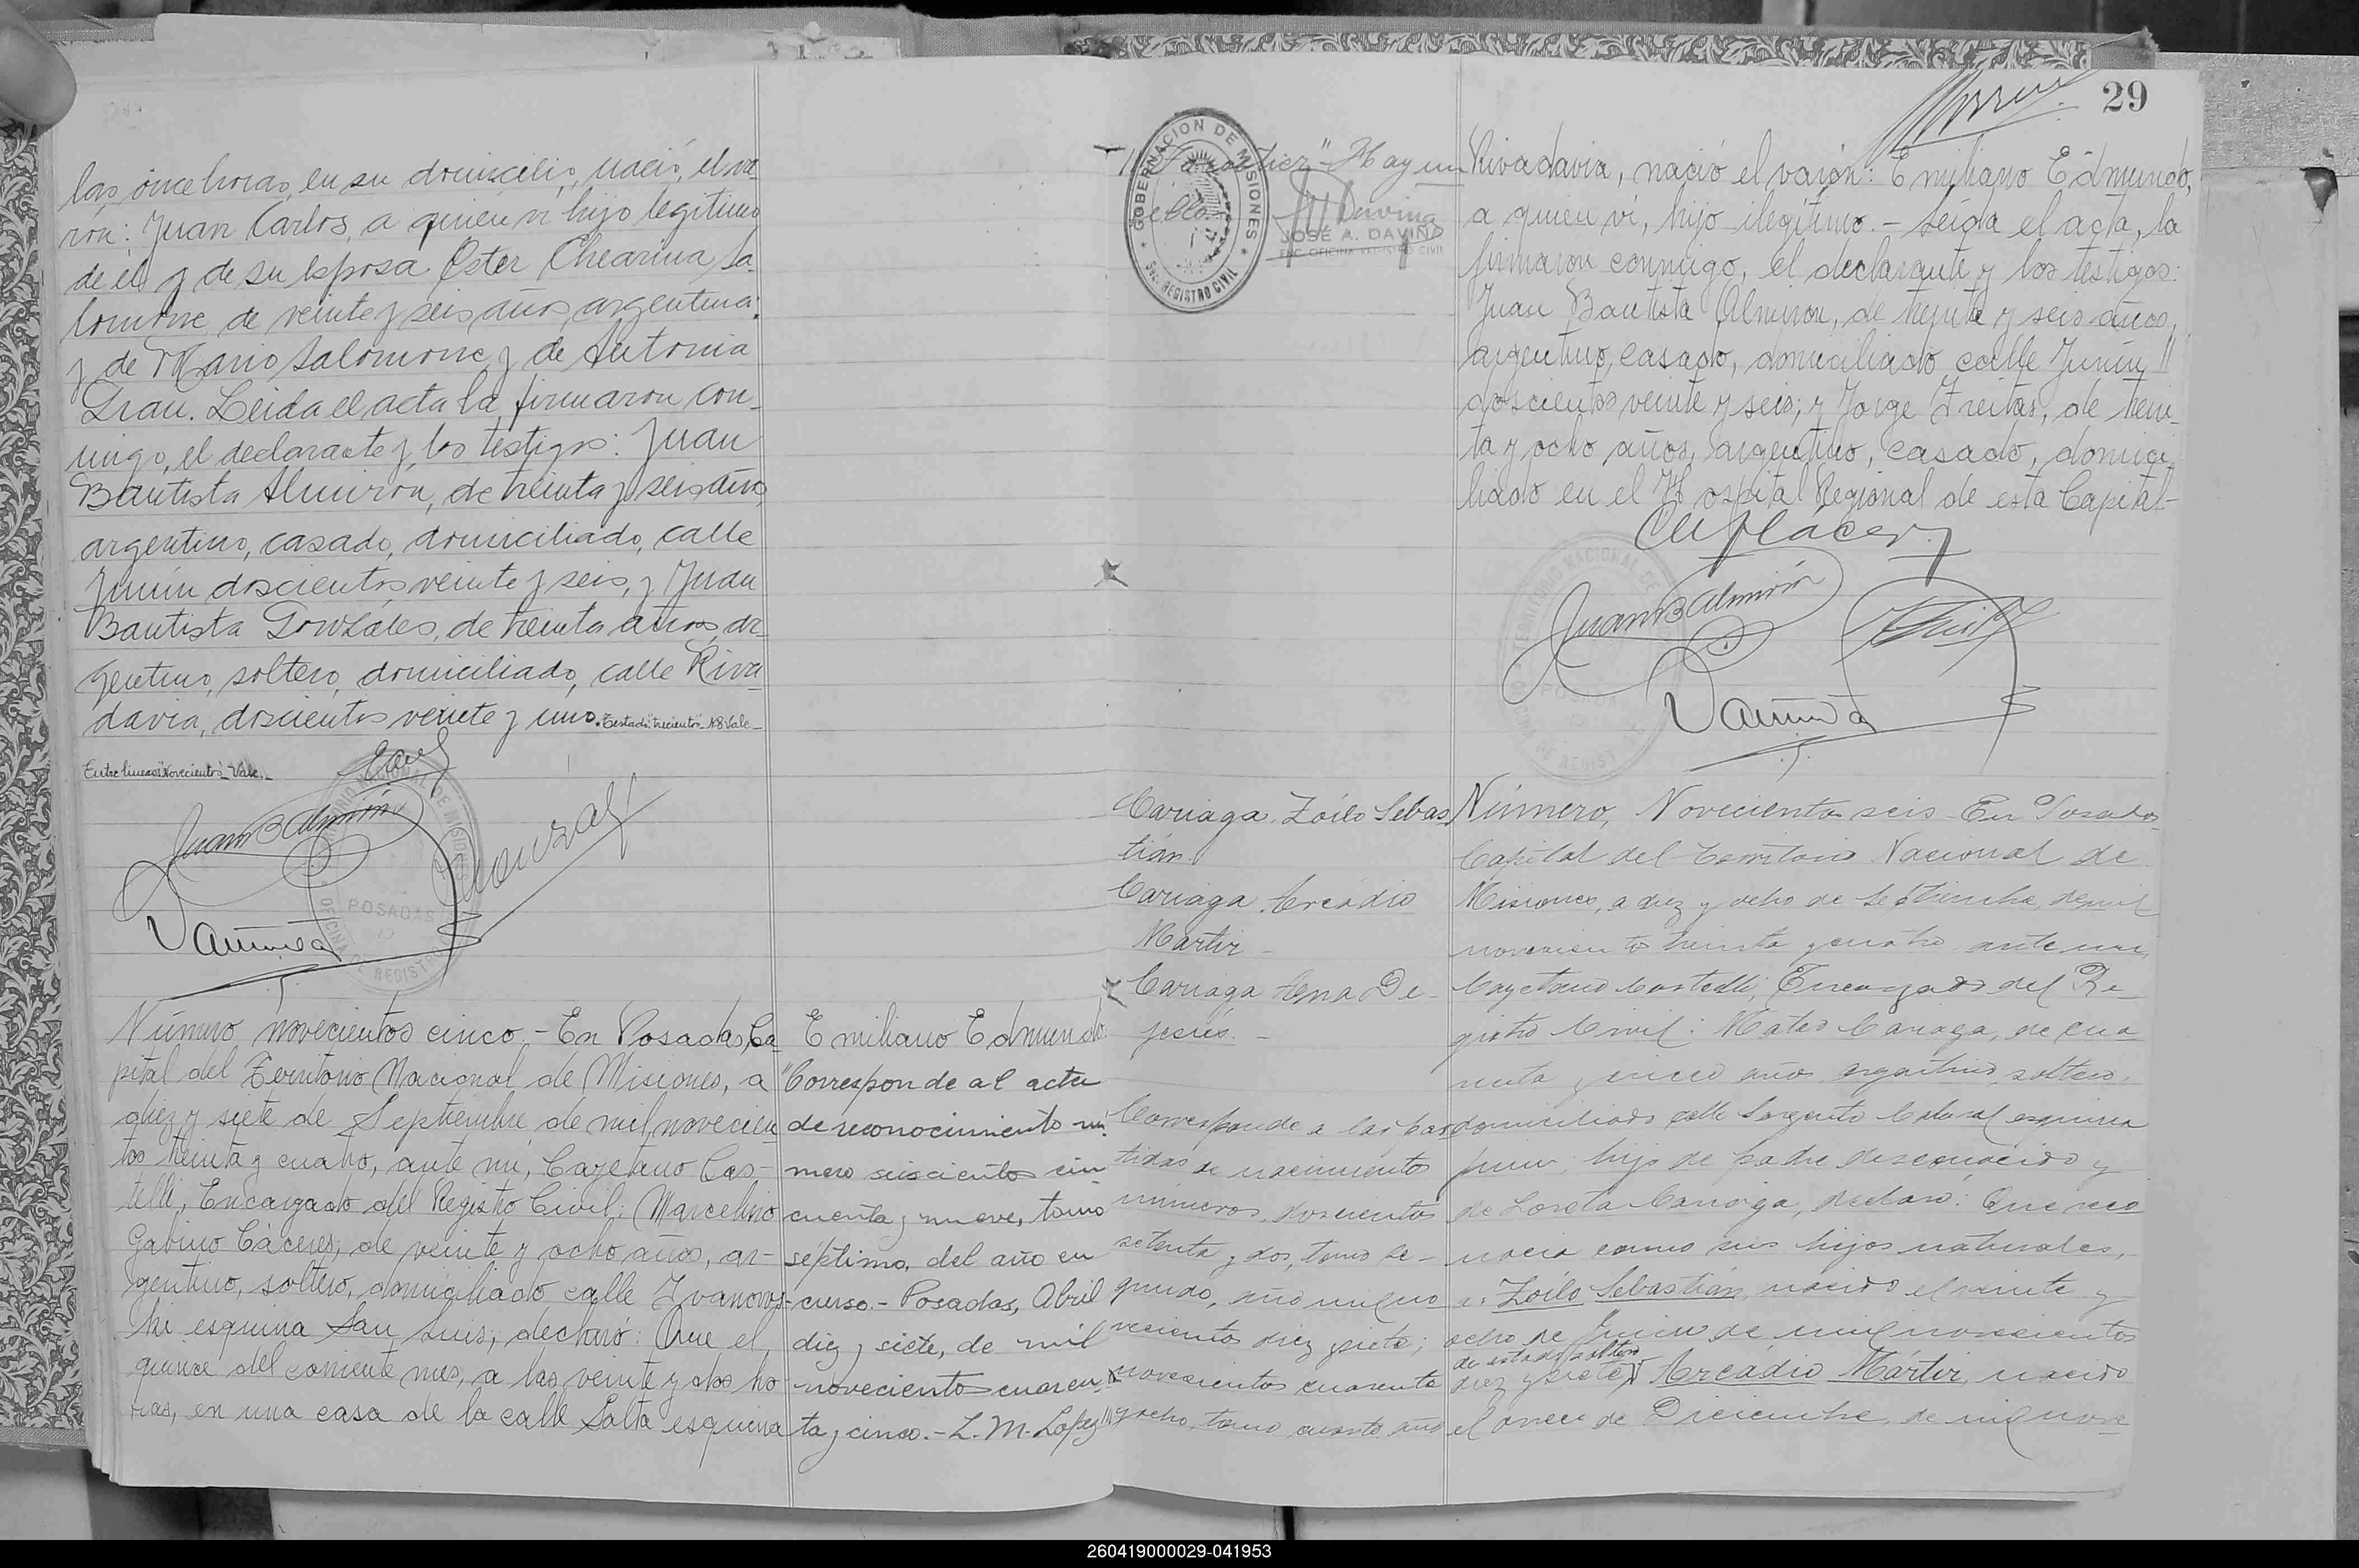 las once horas, en su domicilio, nació, el va-
rón: Juan Carlos, a quien vi hijo legítimo
de él y de su esposa Ester Chearina Sa-
lomone, de veinte y seis años, argentina;
y de Mario Salomone y de Antonia
Grau. Leida el acta la firmaron con-
migo, el declarante y los testigos: Juan
Bautista Almirón, de treinta y seis años,
argentino, casado, domiciliado, calle
Junín doscientos veinte y seis, y Juan
Bautista Gonzáles, de treinta años, ar-
gentino, soltero, domiciliado, calle Riva-
davia, doscientos veinte y uno. Testado "trecientos" N8 Vale-
Entre lineas: Novecientos - Vale.-
Juan B Almirón
POSADAS
Número novecientos cinco.- En Posadas, Ca-
pital del Territorio Nacional de Misiones, a
diez y siete de Septiembre de mil novecien-
tos treinta y cuatro, ante mi, Cayetano Cas-
telli, Encargado del Registro Civil; Marcelino
Gabino Cáceres, de veinte y ocho años, ar-
gentino, soltero, domiciliado calle Ivanows-
ki esquina San Luis, declaró: Que el
quince del corriente mes, a las veinte y dos ho-
ras, en una casa de la calle Salta esquina
Emiliano Edmundo.
"Corresponde al acta
de reconocimiento nú-
mero seiscientos cin-
cuenta y nueve, tomo
séptimo, del año en
curso.- Posadas, Abril
diez y siete, de mil
novecientos cuaren-
ta y cinco.- L. M. Lopez"
Hay un
sello.
GOBERNACION DE MISIONES
REGISTRO CIVIL
JOSÉ A. DAVIÑA
ENC. OFICINA REGISTRO CIVIL
29
Rivadavia, nació el varón: Emiliano Edmundo,
a quien vi, hijo ilegítimo.- Leida el acta, la
firmaron conmigo, el declarante y los testigos:
Juan Bautista Almiron, de treinta y seis años,
argentino, casado, domiciliado calle Junín
doscientos veinte y seis; y Jorge Freitas, de trein-
ta y ocho años, argentino, casado, domici-
liado en el Hospital Regional de esta Capital-
Juan B Almirón
Cariaga, Zóilo Sebas
tián.
Cariaga Arcadio
Martir -
Cariaga Ana De-
Jesús. -
Corresponde a las par
tidas de nacimiento
números, doscientos
setenta y dos, tomo se-
gundo, año mil no
vecientos diez y siete;
novecientos cuarenta
y ocho, tomo cuarto año
Número, Novecientos seis - En Posadas
Capital del Territorio Nacional de
Misiones, a diez y ocho de Septiembre, de mil
novecientos treinta y cuatro ante mi,
Cayetano Castelli, Encargado del Re-
gistro Civil: Mateo Cariaga, de cua
renta y cinco años argentino, soltero.
domiciliado calle Sargento Cabral esquina
Junin, hijo de padre desconocido y
de Loreta Cariaga, declaró: Que reco
nocia como sus hijos naturales,
a: Zóilo Sebastián, nacido el veinte y
ocho de Junio de mil novecientos
de estado soltero
diez y siete; Arcadio Mártir, nacido
el once de Diciembre, de mil nove
260419000029-041953